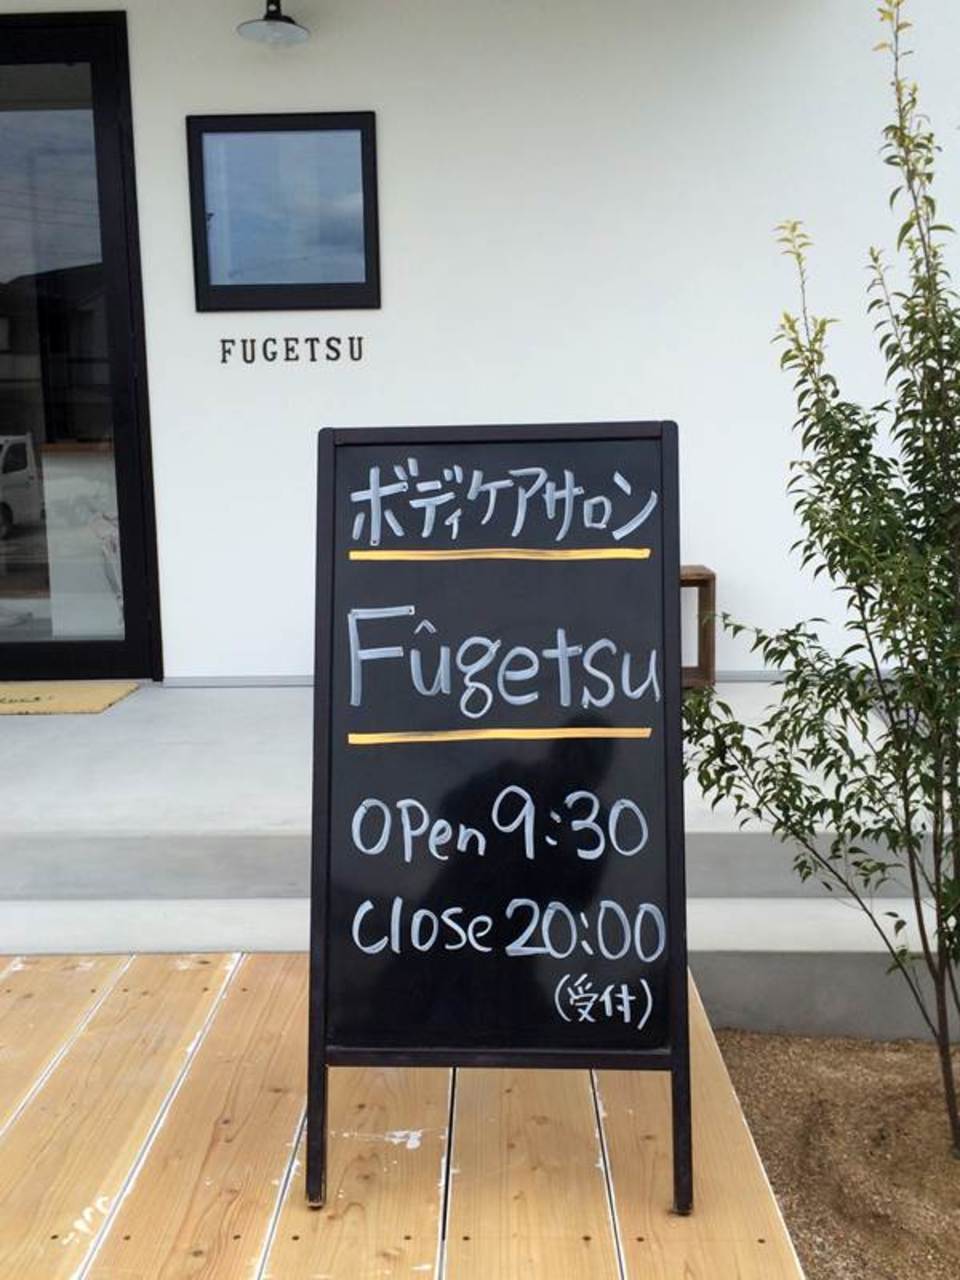 FUGETSU
ボディケアサロン
Fûgetsu
open 9:30
close 20:00
(受付)